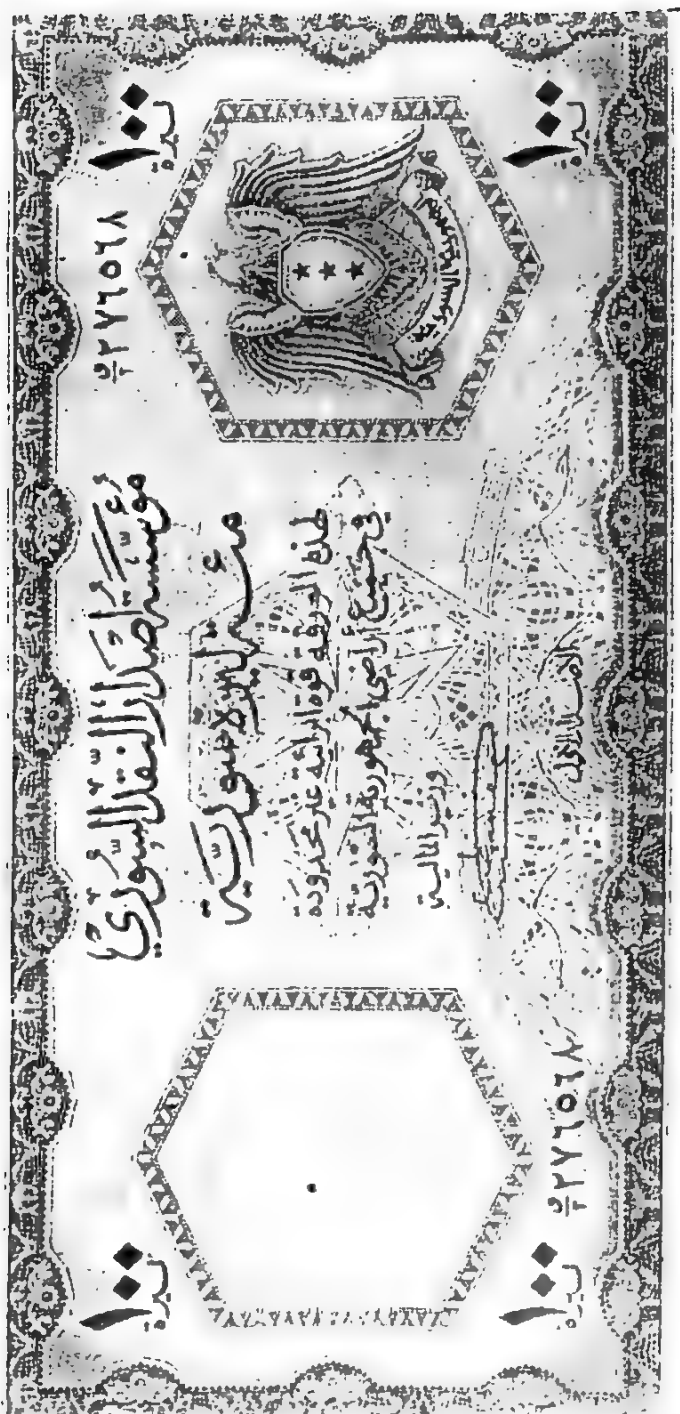 ١٠٠
ليرة
١٠٠
ليرة
٢٧٦٥٦٨
مؤسسة إصدار النقد السوري
مئة ليرة سورية
لهذه الورقة قوة إبرائية غير محدودة
في جميع أراضي الجمهورية السورية
وزير المالية
الاصدار الاول
٢٧٦٥٦٨
١٠٠
ليرة
١٠٠
ليرة